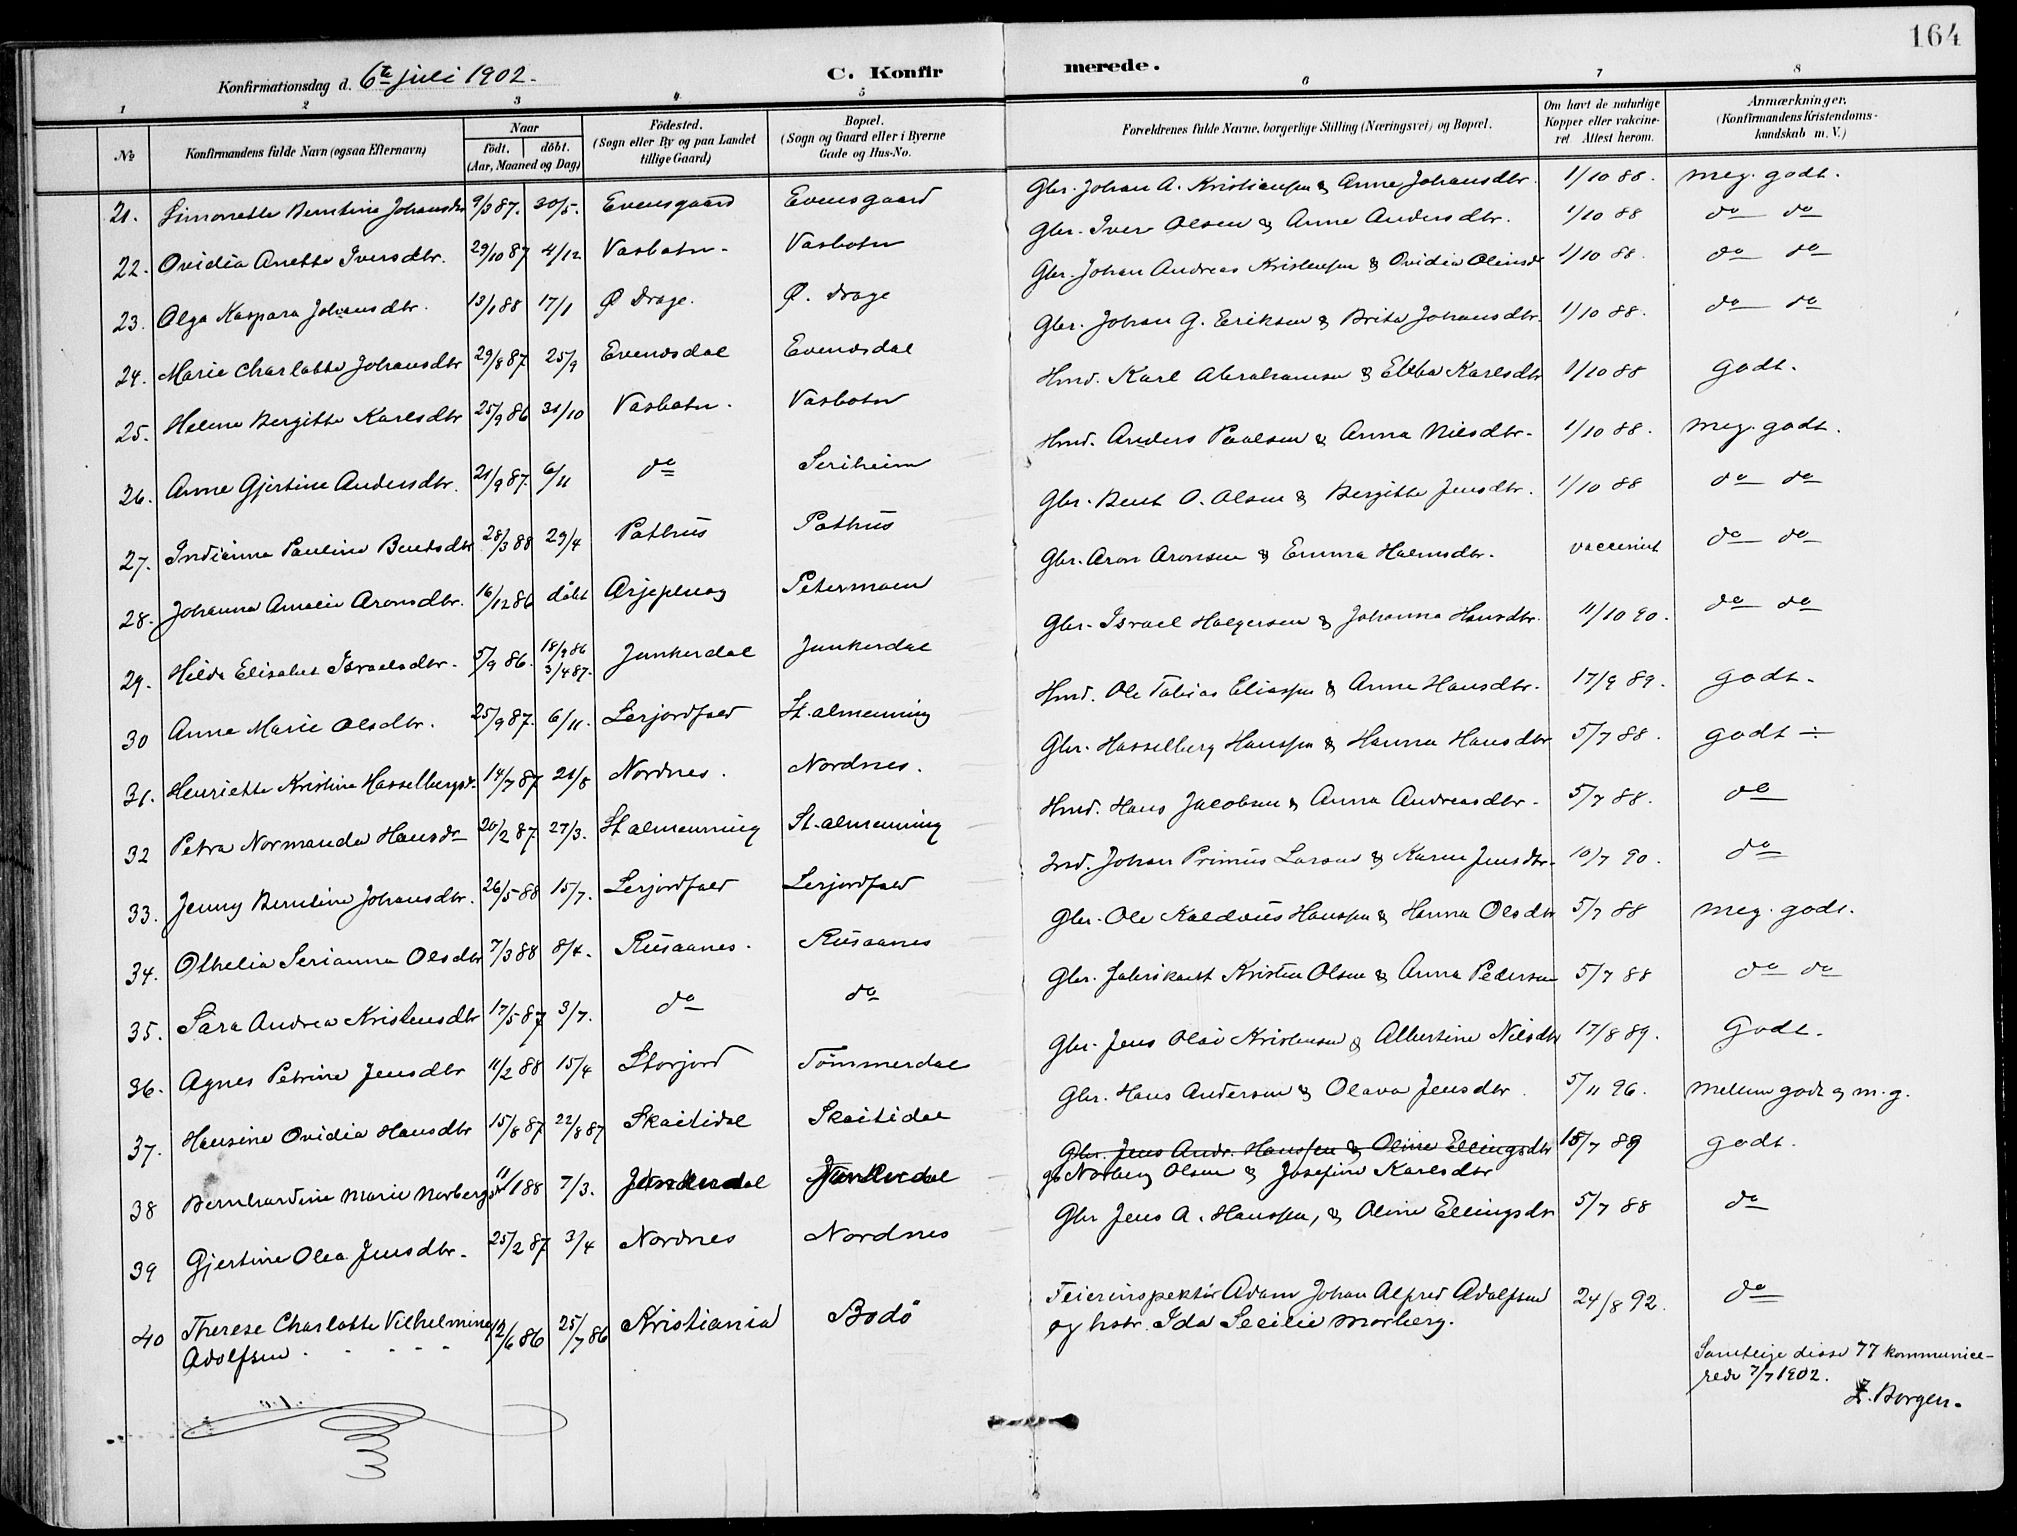 164
Konfirmationsdag d. 6te juli 1902.
C. Konfirmerede.
1 2 3 4 5 6 7 8
No
Konfirmandens fulde Navn (ogsaa Efternavn)
Naar
födt. döbt.
(Aar, Maaned og Dag)
Födested.
(Sogn eller By og paa Landet
tillige Gaard)
Bopæl.
(Sogn og Gaard eller i Byerne
Gade og Hus-No.
Forældrenes fulde Navne, borgerlige Stilling (Næringsvei) og Bopæl.
Om havt de naturlige
Kopper eller vakcine-
ret. Attest herom.
Anmærkninger.
(Konfirmandens Kristendoms-
kundskab m. V.)
21. Simonette Berntine Johansdr 9/3 87. 30/5. Evensgaard Evensgaard Gbr. Johan A. Kristiansen & Anne Johansdtr. 1/10 88. meg. godt.
22. Ovidia Anette Iversdtr. 29/10 87 4/12 Vasbotn. Vasbotn Gbr. Iver Olsen & Anne Andersdtr. 1/10 88 do do
23. Olga Kaspara Johansdtr. 13/1 88 17/1 Ø Drage. Ø. Drage Gbr. Johan Andreas Kristensen & Ovidia Olinsdr 1/10 88. do do
24. Marie Charlotte Johansdtr 29/8 87 25/9 Evensdal Evensdal Gbr. Johan G. Eriksen & Brita Johansdtr. 1/10 88. do do
25. Helene Bergitte Karlsdtr 25/9 86 31/10 Vasbotn. Vasbotn Hmd. Karl Abrahamsen & Ebba Karlsdtr 1/10 88 godt.
26. Anne Gjertine Andersdtr. 21/9 87. 6/11 do Seriheim Hmd. Anders Paulsen & Anna Nilsdtr. 1/10 88. meg. godt.
27. Indianna Pauline Bentsdtr 28/3 88 29/4 Pothus Pothus Gbr. Bent O. Olsen & Bergitte Jensdtr. 1/10 88 do do
28. Johanna Amalie Aronsdtr. 16/12 86 döbt Arjepluog Petermoen Gbr. Aron Aronsen & Emma Holmsdtr. vaccinert do do
29. Hilda Elisabet Israelsdtr. 5/9 86. 18/9 86 3/4 87. Junkerdal Junkerdal Gbr. Israel Holgersen & Johanna Hansdtr. 11/10 90. do do
30 Anna Marie Olsdtr. 25/9 87. 6/11. Lerjordfald St. almenning Hmd. Ole Tobias Eliassen & Anne Hansdtr. 17/9 89. godt.
31. Henriette Kristine Hasselbergsdr 14/7 87 21/8 Nordnes. Nordnes. Gbr. Hasselberg Hanssen & Hanna Hansdtr 5/7 88. godt ÷
32 Petra Normanda Hansdr 20/2 87. 27/3. St almenning St. almenning Hmd. Hans Jacobsen & Anna Andreasdtr. 5/7 88. do
33. Jenny Berntine Johansdtr. 26/5 88 15/7. Lerjordfald Lerjordfald Ind. Johan Primus Larsen & Karen Jensdtr. 10/7 90. do
34. Othelia Serianna Olsdtr 7/3 88 8/4. Rusaanes. Rusaanes Gbr. Ole Kaldvus Hanssen & Hanna Olsdtr 5/7 88 meg. godt.
35. Sara Andrea Kristensdtr 17/5 87 3/7. do do Gbr. Fabrikant Kristen Olsen & Anna Pedersen 5/7 88 do do
36. Agnes Petrine Jensdtr 11/2 88 15/4 Storjord Tömmerdal Gbr. Jens Olai Kristensen & Albertine Nilsdtr 17/8 89. Godt.
37. Hansine Ovidia Hansdtr 15/8 87 22/8 87 Skaitidal Skaitidal Gbr. Hans Andersen & Olava Jensdtr. 5/11 96. mellem godt og m.g.
Gbr. Jens Andr. Hanssen & Oline Ellingsdtr
38 Bernhardine Marie Norbergsdtr 11/1 88 7/3. Junkerdal Junkerdal gb Norberg Olsen & Josefine Karlsdtr 15/7 89 godt.
39 Gjertine Olea Jensdtr. 25/2 87 3/4 Nordnes Nordnes Gbr Jens A. Hanssen, & Oline Ellingsdtr 5/7 88 do
40 Therese Charlotte Vilhelmine 12/6 86 25/7 86 Kristiania Bodö Feierinspektör Adam Johan Alfred Adolfsen 24/8 92. do
Adolfsen og hstr. Ida Secilie Morberg.
Samtlige disse 77 kommunice-
rede 7/7 1902.
Borgen.